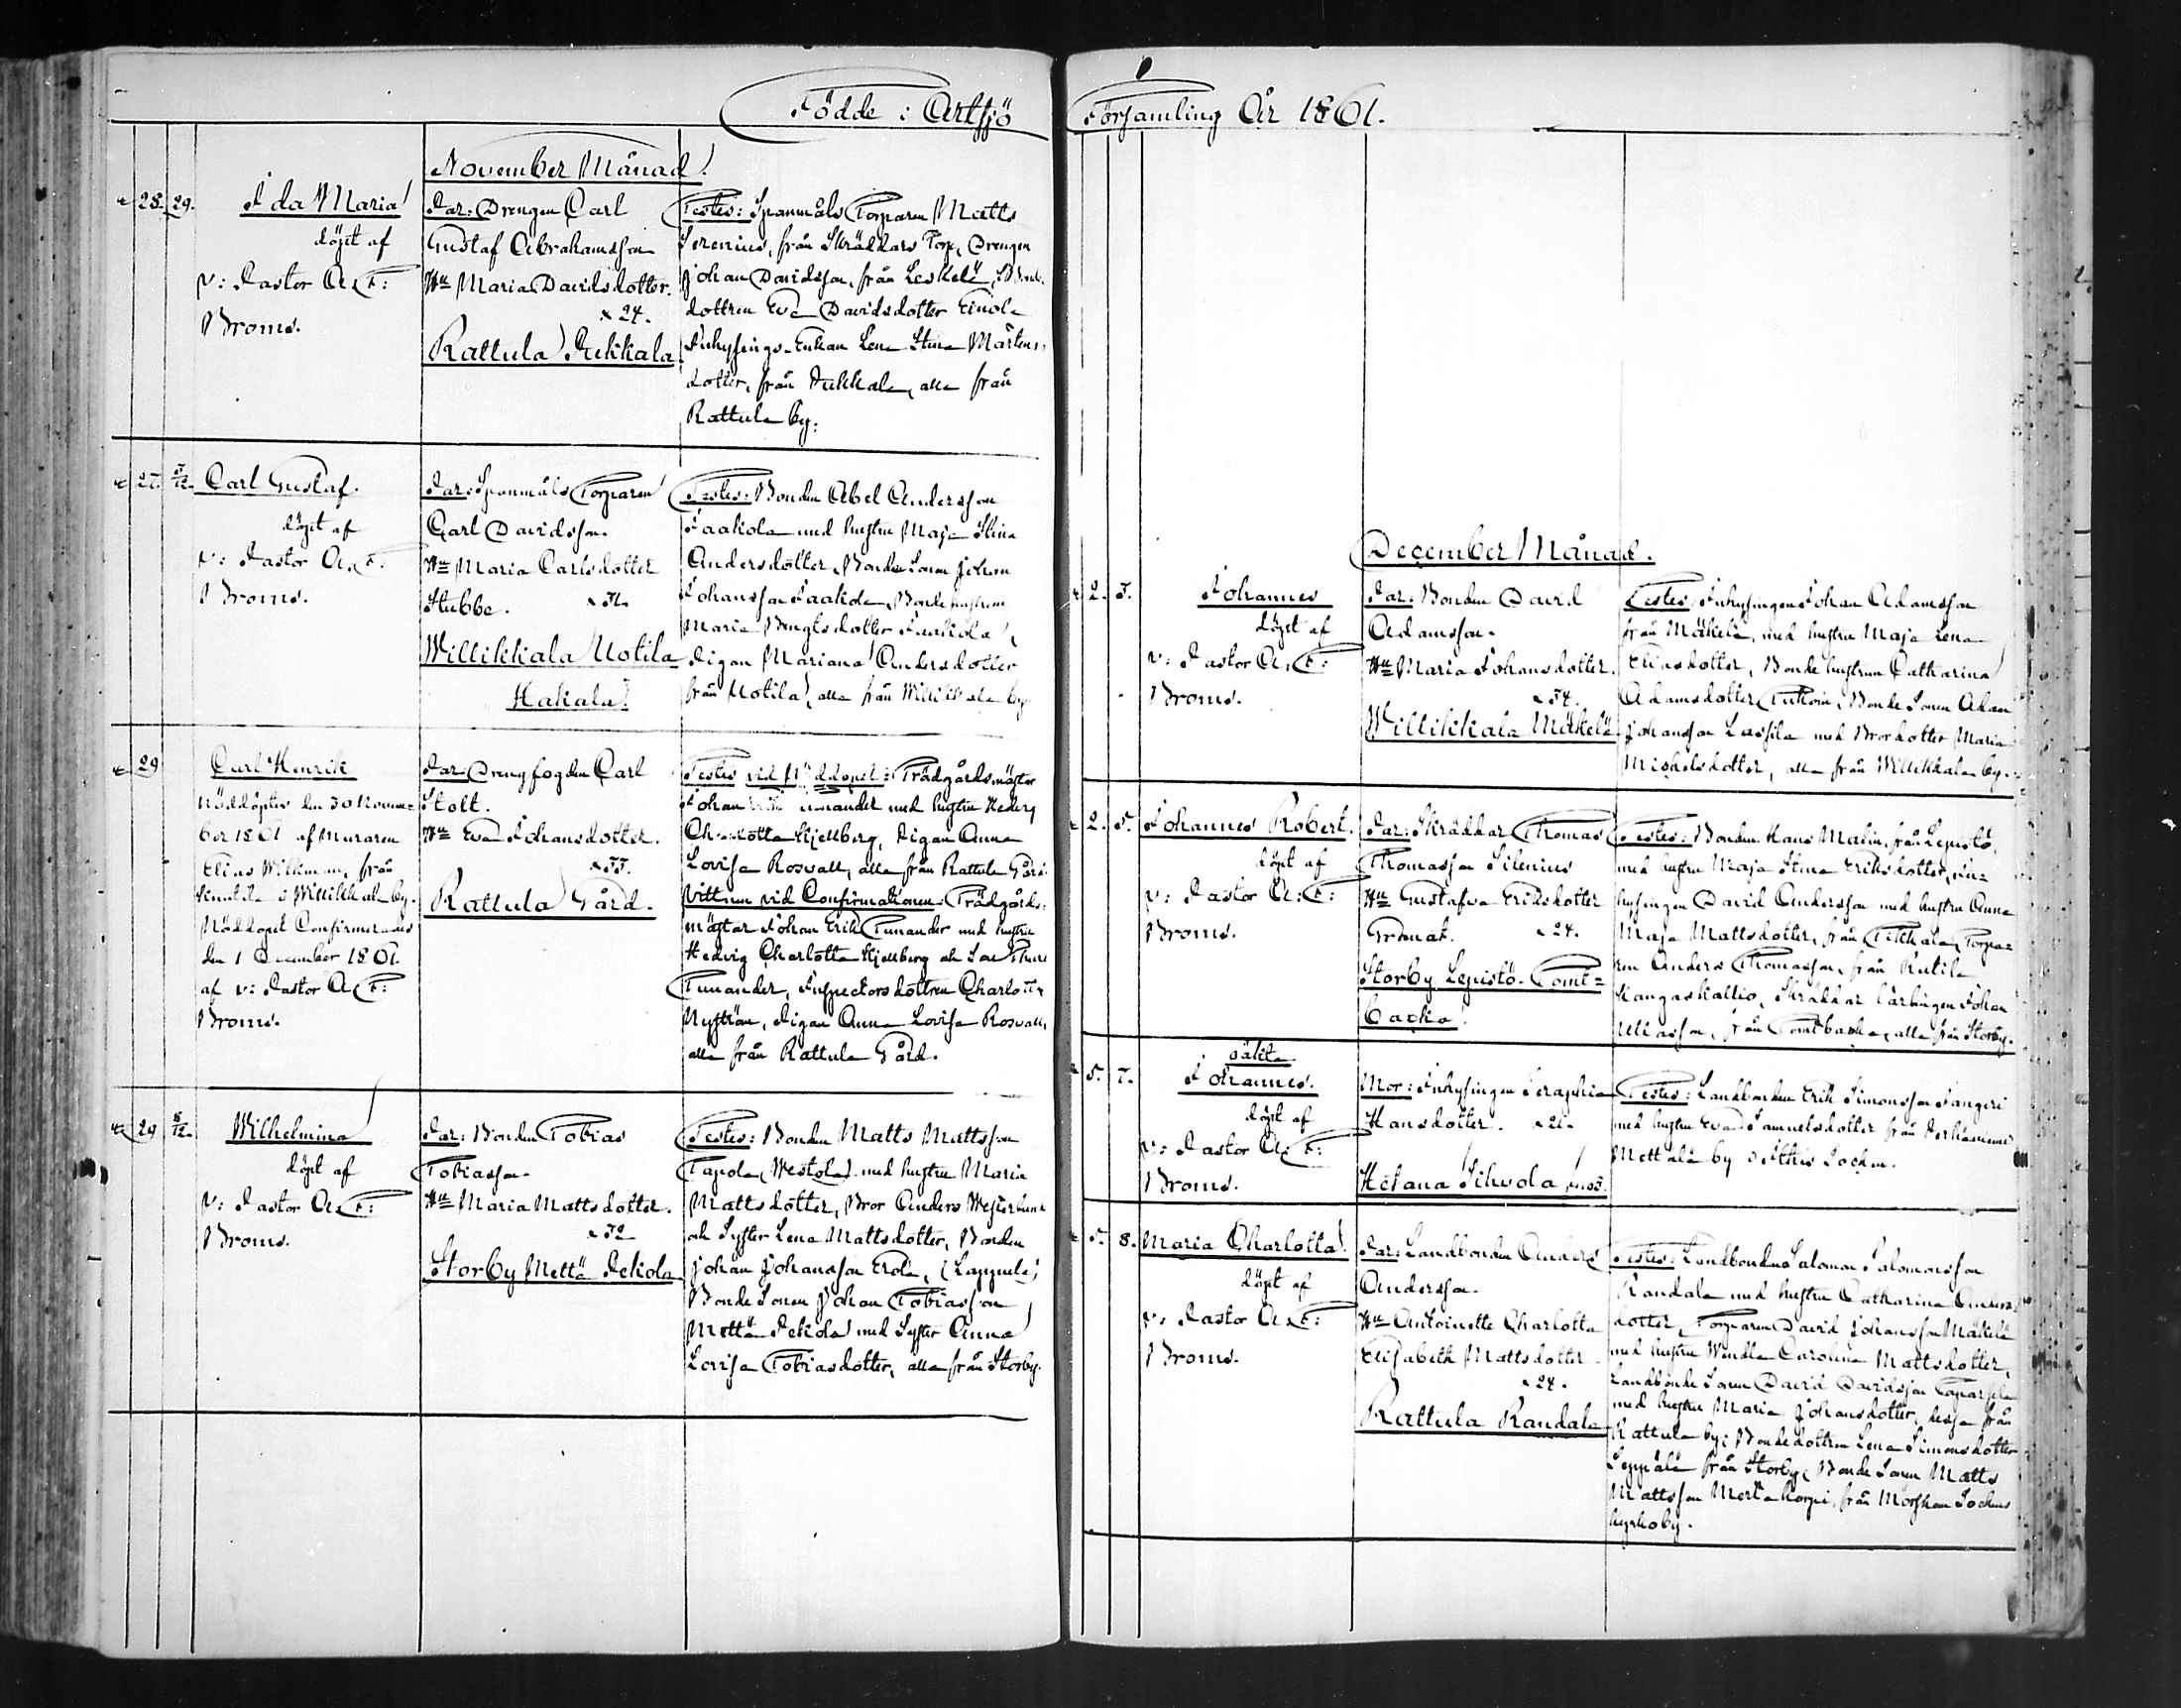 Födde i Artsjö
November Månad.
28. 29. Ida Maria
döpt af
v: Pastor A. F:
Broms.
Far: Drengen Carl
Gustaf Abrahamsson
Hu Maria Davidsdotter.
x 24.
Rattula Pukkala
Testes: Spanmåls Torparen Matts
Serenius, från Skräddars Torp, Drengen
Johan Davidsson, från Leskelä,
dottren Eva Davidsdotter Einola
Inhysings-Enkan Lena Stina Mårtens-
dotter, från Pukkala, alla från
Rattula by.
27. Carl Gustaf.
döpt af
v: Pastor A. F:
Broms.
Far: Spanmåls Torparen
Carl Davidsson.
Hu Maria Carlsdotter
Stubbe.
Willikkala Uotila
Hakala.
Testes: Bonden Abel Andersson
Jaakola med hustru Maja Stina
Andersdotter, Bonde Sonen Johan
Johansson Jaakola, Bonde hustrun
Maria Bengtsdotter Jaakola,
Pigan Mariana Andersdotter
från Uotila, alla från Willikkala by.
29 Carl Henrik
Nöddöptes den 30 Novem-
ber 1861 af Muraren
Elias Wikman, från
i Willikkala by.
Nöddopet Confirmerades
den 1 December 1861.
af v: Pastor A. F:
Broms.
Far Drengfogden Carl
Stolt.
Hu Eva Johansdotter.
x 33.
Rattula Gård.
Testes vid Nöddopet: Trädgårdsmästar
Johan med hustru Hedvig
Charlotta Hjellberg, Pigan Anna
Lovisa Roswall, alla från Rattula Gård.
Vittnen vid Confirmationen: Trädgårds-
mästar Johan Erik Tunander med hustru
Hedvig Charlotta Hjellberg och Son
Tunander, Inspectorsdottren Charlotta
Nyström, Pigan Anna Lovisa Roswall,
alla från Rattula Gård.
29 8/12. Wilhelmina
döpt af
v: Pastor A. F:
Broms.
Far: Bonden Tobias
Tobiasson.
Hu Maria Mattsdotter.
x 32
Storby Mettä Pekola
Testes: Bonden Matts Mattsson
Tapola (Westola) med hustru Maria
Mattsdotter, Bror Anders Westerlund
och Syster Lena Mattsdotter, Bonden
Johan Johansson Erola,
Bonde Sonen Johan Tobiasson
Mettä Pekola med Syster Anna
Lovisa Tobiasdotter, alla från Storby.
Församling År 1861.
December Månad.
2. 3. Johannes
döpt af
v: Pastor A. F:
Broms.
Far: Bonden David
Adamsson.
Hu Maria Johansdotter.
x 34.
Willikkala Mäkelä
Testes: Inhysingen Johan Adamsson
från Mäkelä, med hustru Maja Lena
Eliasdotter, Bonde hustrun Catharina
Adamsdotter, Bonde Sonen Adam
Johansson Lassila med Brordotter Maria
Michelsdotter, alla från Willikkala by.
2. 5. Johannes Robert.
döpt af
v: Pastor A: F:
Broms.
Far: Skräddar Thomas
Thomasson Silenius
Hu Gustafva Eriksdotter
Grönat. x 24.
Storby Lepistö-Tomt-
backa.
Testes: Bonden Hans Malin, från Lepistö,
med hustru Maja Stina Eriksdotter, In-
hysingen David Andersson med hustru Anna
Maja Mattsdotter, från Torpa-
ren Anders Thomasson, från Rutila
Kangaskallio, Skräddar lärlingen Johan
från Tomtbacka, alla från Storby.
5. 7. oäkta
Johannes.
döpt af
v: Pastor A. F:
Broms.
Mor: Inhysingen Seraphia
Hansdotter.
Hietana Sihvola
Testes: Landbonden Erik Simonsson Kangeri
med hustru Eva Samuelsdotter från
Mettälä by Sochn.
5. 8. Maria Charlotta.
döpt af
v: Pastor A. F:
Broms.
Far: Landbonden Anders
Andersson.
Hu Antoinette Charlotta
Elisabeth Mattsdotter.
x 24.
Rattula Randala
Testes: Landbonden Salomon Salomonsson
Randala med hustru Catharina
dotter, Torparen David Johansson Mäkelä
med hustru Wendla Carolina Mattsdotter,
Landbonde Sonen David Davidsson
med hustru Maria Johansdotter, dessa från
Rattula by; Bondedottren Lena Simonsdotter
Seppälä från Storby, Bonde Sonen Matts
Mattsson från Mörskom Sockens
kyrkoby.